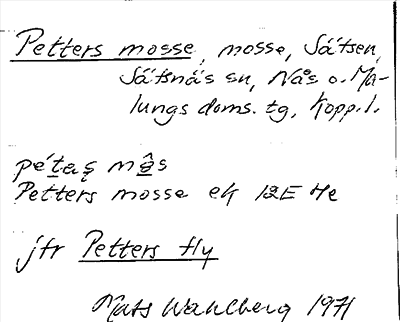 Petters mosse, mosse, Sätsen,
Sätsnäs sn, Nås o. Ma-
lungs doms. tg, Kopp. l.
Petters mosse ek 12E 4e
jfr Petters fly
Mats Wahlberg 1971